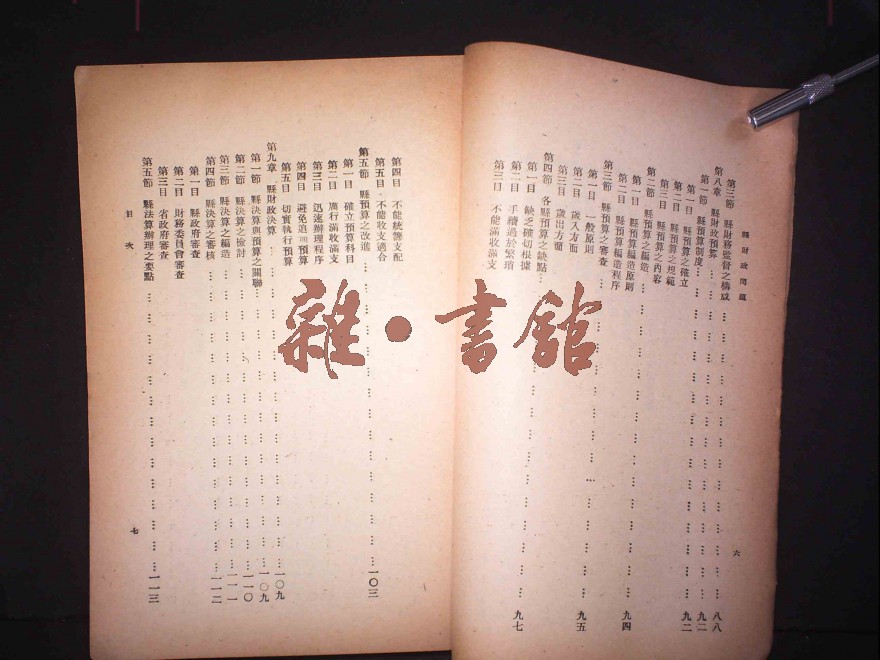 縣財政問題
六
第三節 縣財務監督之構成……八八
第八章 縣財政預算……九二
第一節 縣預算制度……九二
第一目 縣預算之確立
第二目 縣預算之規範
第三目 縣預算之內容
第二節 縣預算之編造……九四
第一目 縣預算編造原則
第二目 縣預算編造程序
第三節 縣預算之審查……九五
第一目 一般原則
第二目 歲入方面
第三目 歲出方面
第四節 各縣預算之缺點……九七
第一目 缺乏確切根據
第二目 手續過於繁瑣
第三目 不能滿收滿支
第四目 不能統籌支配
第五目 不能收支適合
第五節 縣預算之改進……一〇三
第一目 確立預算科目
第二目 厲行滿收滿支
第三目 迅速辦理程序
第四目 避免追加預算
第五目 切實執行預算
第九章 縣財政決算……一〇九
第一節 縣決算與預算之關聯……一〇九
第二節 縣決算之檢討……一一〇
第三節 縣決算之編造……一一一
第四節 縣決算之審核……一一二
第一目 縣政府審查
第二目 財務委員會審查
第三目 省政府審查
第五節 縣法算辦理之要點……一一三
目次
七
雜·書館